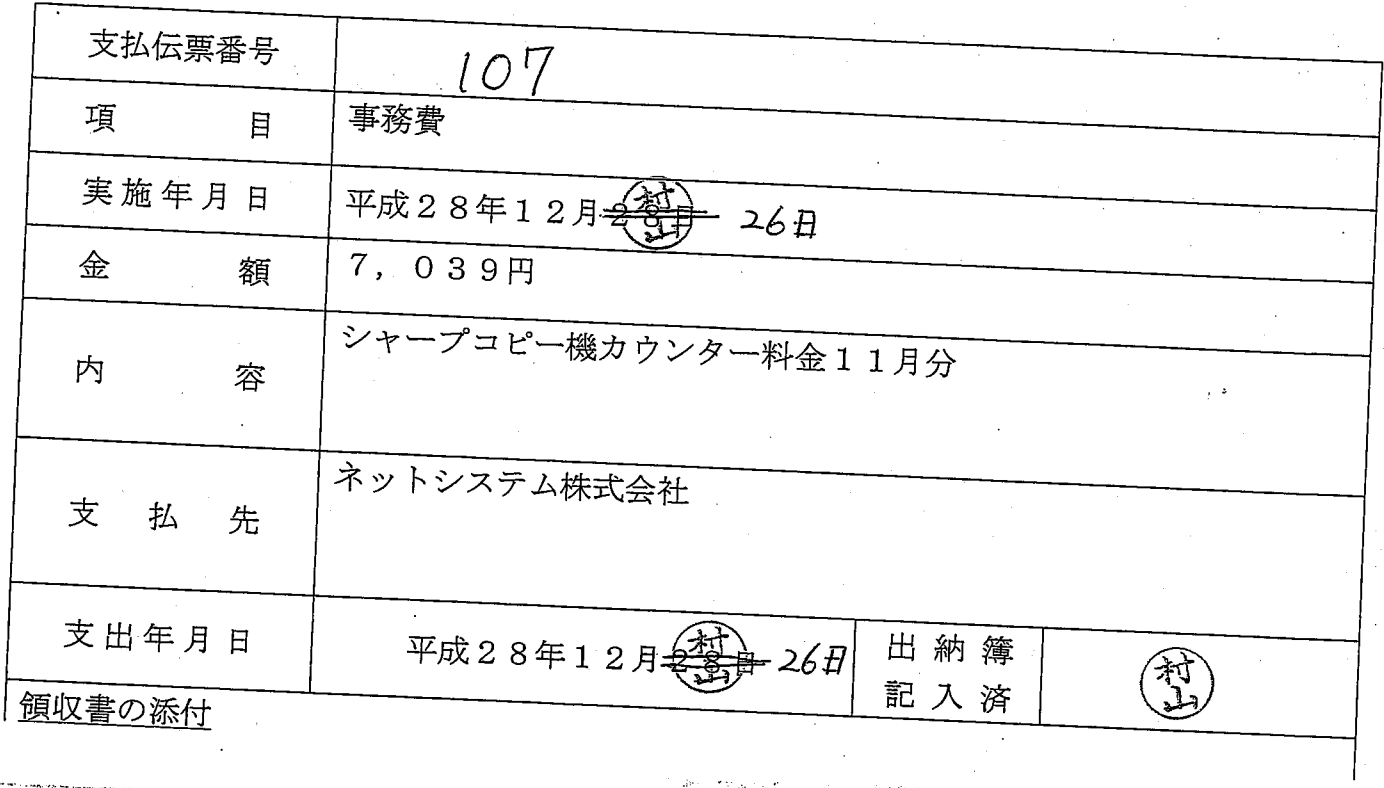 支払伝票番号 107
項目 事務費
実施年月日 平成28年12月28日 村山 26日
金額 7,039円
内容 シャープコピー機カウンター料金11月分
支払先 ネットシステム株式会社
支出年月日 平成28年12月28日 村山 26日 出納簿記入済 村山
領収書の添付